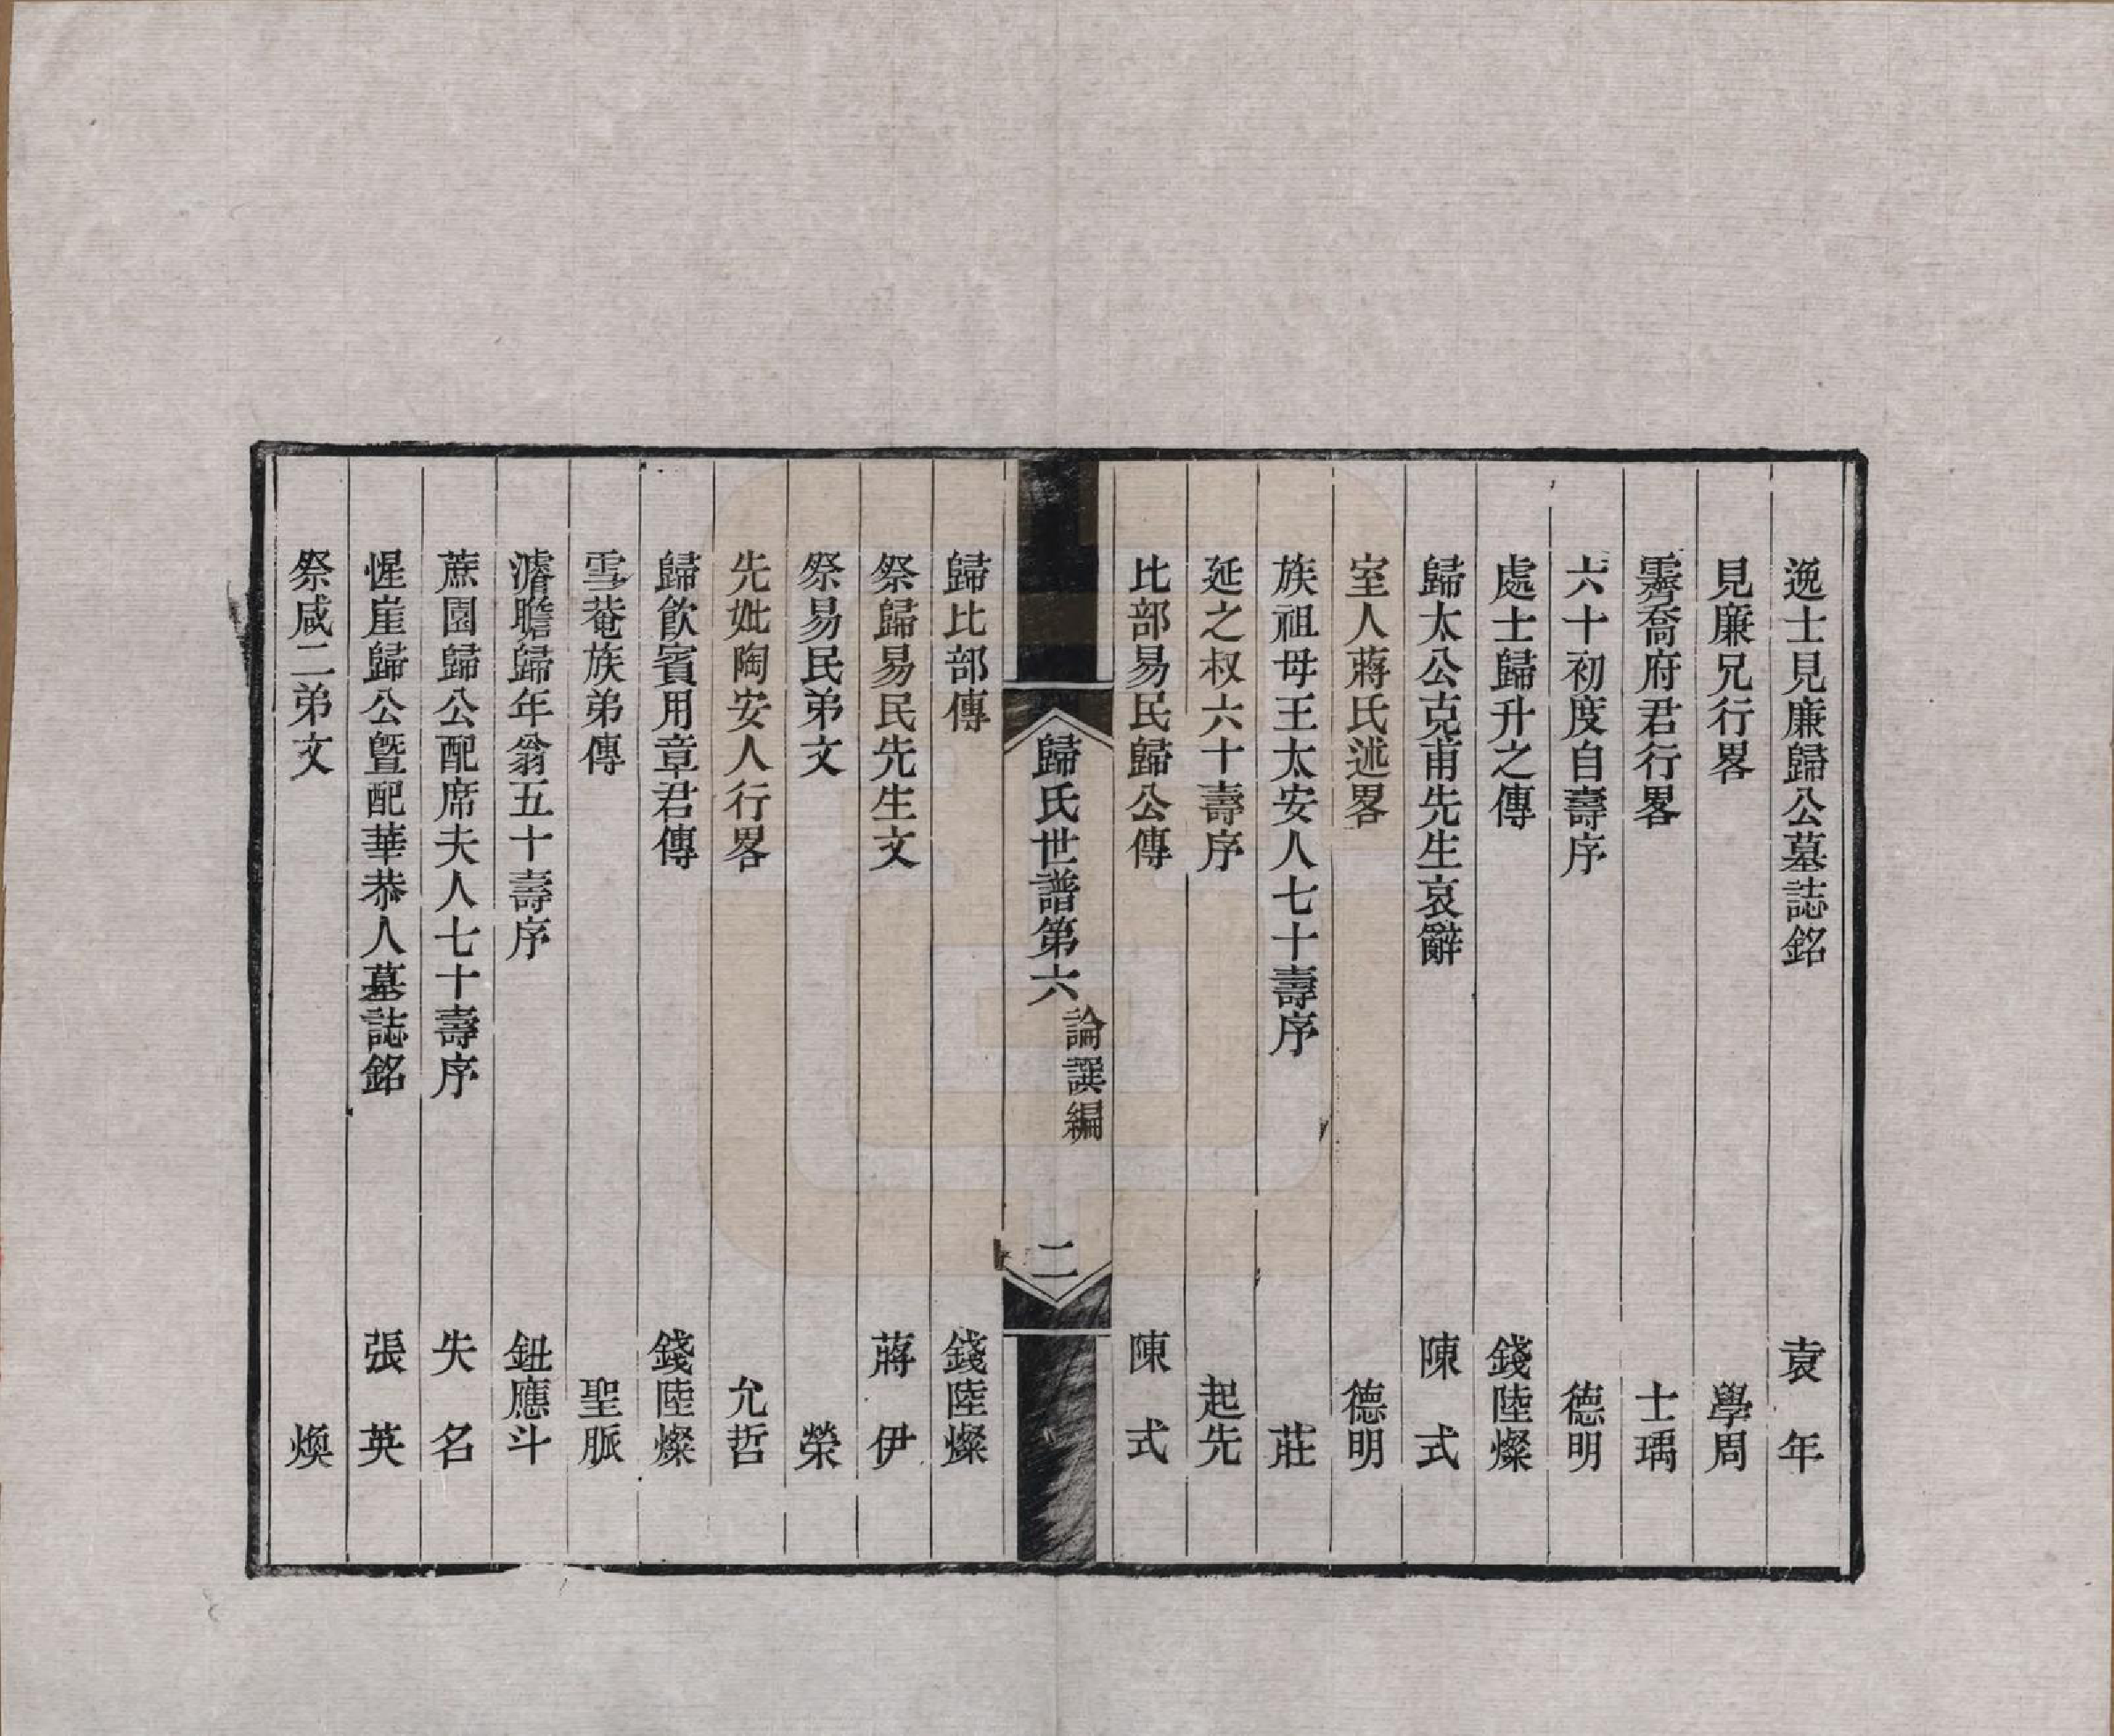 逸士見廉歸公墓誌銘　袁年
見廉兄行畧　學周
霽喬府君行畧　士瑀
六十初度自壽序　德明
處士歸升之傳　錢陸燦
歸太公克甫先生哀辭　陳式
室人蔣氏述畧　德明
族祖母王太安人七十壽序　莊
延之叔六十壽序　起先
比部易民歸公傳　陳式
歸氏世譜第六　論譔編　二
歸比部傳　錢陸燦
祭歸易民先生文　蔣伊
祭易民弟文　榮
先妣陶安人行畧　允哲
歸飮賓用章君傳　錢陸燦
雪菴族弟傳　聖脈
濬瞻歸年翁五十壽序　鈕應斗
蔗園歸公配席夫人七十壽序　失名
惺崖歸公曁配華恭人墓誌銘　張英
祭咸二弟文　煥